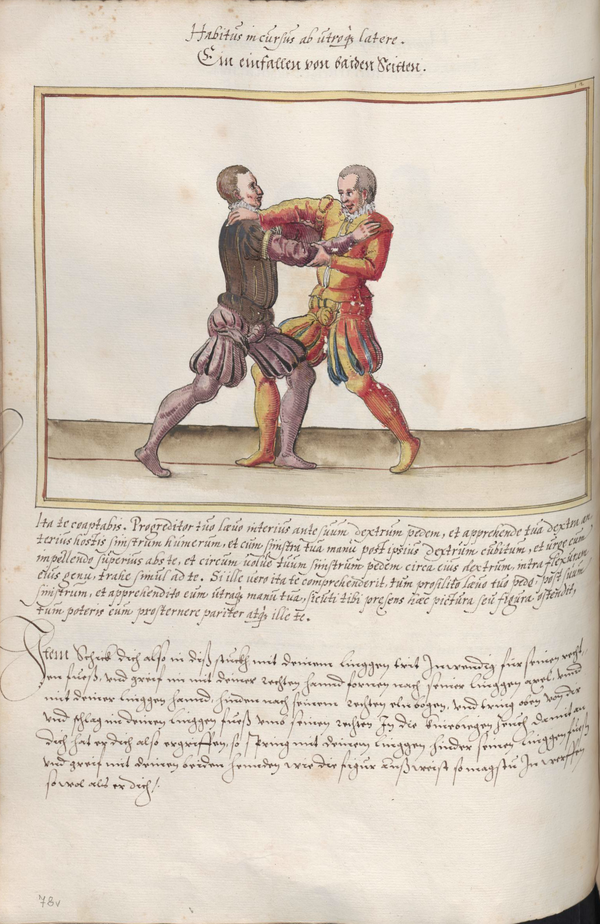 Habitus incursus ab utroq₃ latere.
Ein einfallen von baiden Seitten.
Ita te coaptabis. Progreditor tuo laevo interius ante suum dextrum pedem, et apprehende tua dextra an,
terius hostis sinistrum humerum, et cum sinistra tua manu post ipsius dextrum cubitum, et urge eum
impellendo superius abs te, et circum volue tuum sinistrum pedem circa eius dextrum, intra flexuram
eius genu, trahe simul ad te. Si ille vero ita te comprehenderit, tum prosilito laevo tuo pede post suum
sinistrum, et apprehendito eum utraq₃ manu tua, sicuti tibi praesens haec pictura seu figura ostendit,
tum poteris eum prosternere pariter atq₃ ille te.
Item Schick dich also in diß stuckh mit deinem linggen trit Inwendig für seinen recht,
en fueß, und greif im mit deiner rechten hannd fornen nach seiner linggen axel, unnd
mit deiner linggen hannd hinden nach seinem rechten elnbogen, und tring oben von dir
und schlag im deinen linggen fueß umb seinen rechten In die kniebiegen zeuch, damit an
dich hat er dich also ergriffen, so spring mit deinem linggen hinder seinen linggen fueß
und greif mit deinen beiden hennden wie die figur außweist so magstu In werffen
so wol als er dich /.
78v